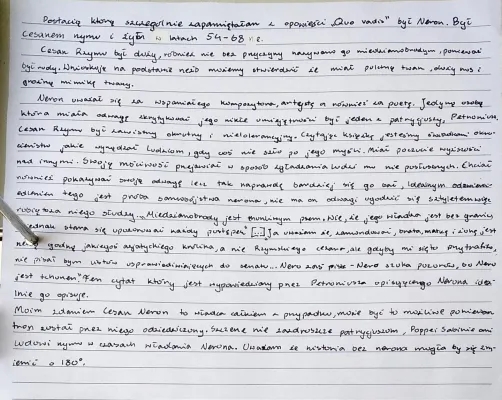 Postacią którą szczególnie zapamiętałam z opowieści „Quo vadis" był Neron. Był
Cesarzem rzymu i żył w latach 54-68 n.e.
Cesarz Rzymu był duży, również nie bez przyczyny nazywano go miedziobrodym, ponieważ
był rudy. Wnioskując na podstawie możemy stwierdzić że miał pulchną twarz, duży nos i
groźną mimikę twarzy.
Neron uważał się za wspaniałego kompozytora, artystę a również za poetę. Jedyną osobą
która miała odwagę skrytykować jego nikłe umiejętności był jeden z patrycjuszy, Petroniusz.
Cesarz Rzymu był zawistny okrutny i nietolerancyjny. Czytając książkę jesteśmy świadkami okru
cieństw jakie wyrządzał ludziom, gdy coś nie szło po jego myśli. Miał poczucie wyższości
nad innymi. Swoją mściwość przejawiał w sposób zgładzania ludzi mu nie posłusznych. Chciał
również pokazywać swoją odwagę lecz tak naprawdę bardziej się go bać, Idealnym
tego jest próba samobójstwa nerona, nie ma on odwagi ugodzić się sztyletem więc
robi to za niego sługa. „Miedzianobrody jest tchórzliwym psem, Wie, że jego władza jest bez granic
jednak stara się upozorować każdy postępek [...] Ja uważam że, zamordować, brata, matkę i żonę jest
rzeczą godną jakiegoś azjatyckiego królika, a nie Rzymskiego cesarza, ale gdyby mi się to przytrafiło,
nie pisał bym listów usprawiedliwiających do senatu... Nero zaś pisze - Nero szuka pozorów, bo Nero
jest tchórzem." Ten cytat który jest wypowiedziany przez Petroniusza opisującego Nerona idea-
lnie go opisuje.
Moim zdaniem Cesarz Neron to władca całkiem z przypadku, może być to możliwe ponieważ
tron został przez niego odziedziczony. Szczerze nie zazdroszczę patrycjuszom, Poppei Sabinie ani
ludowi rzymu w czasach władania Nerona. Uważam że historia bez nerona mogła by się zm-
ienić o 180°.